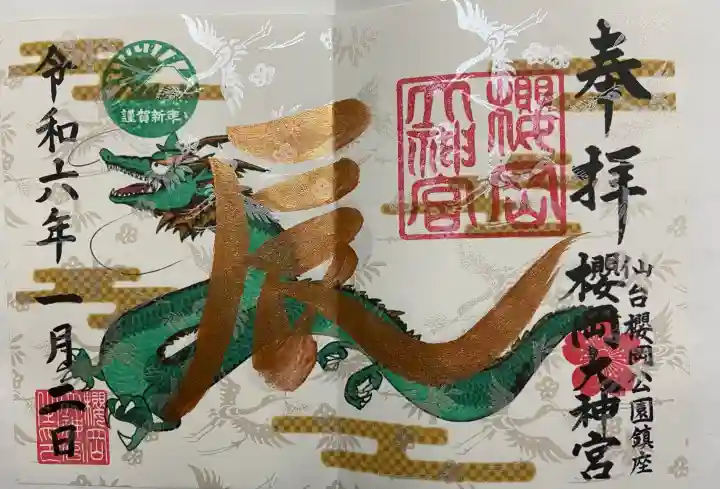 奉拝
仙台櫻岡公園鎮座
櫻岡大神宮
櫻岡
大神宮
辰
謹賀新年
令和六年一月二日